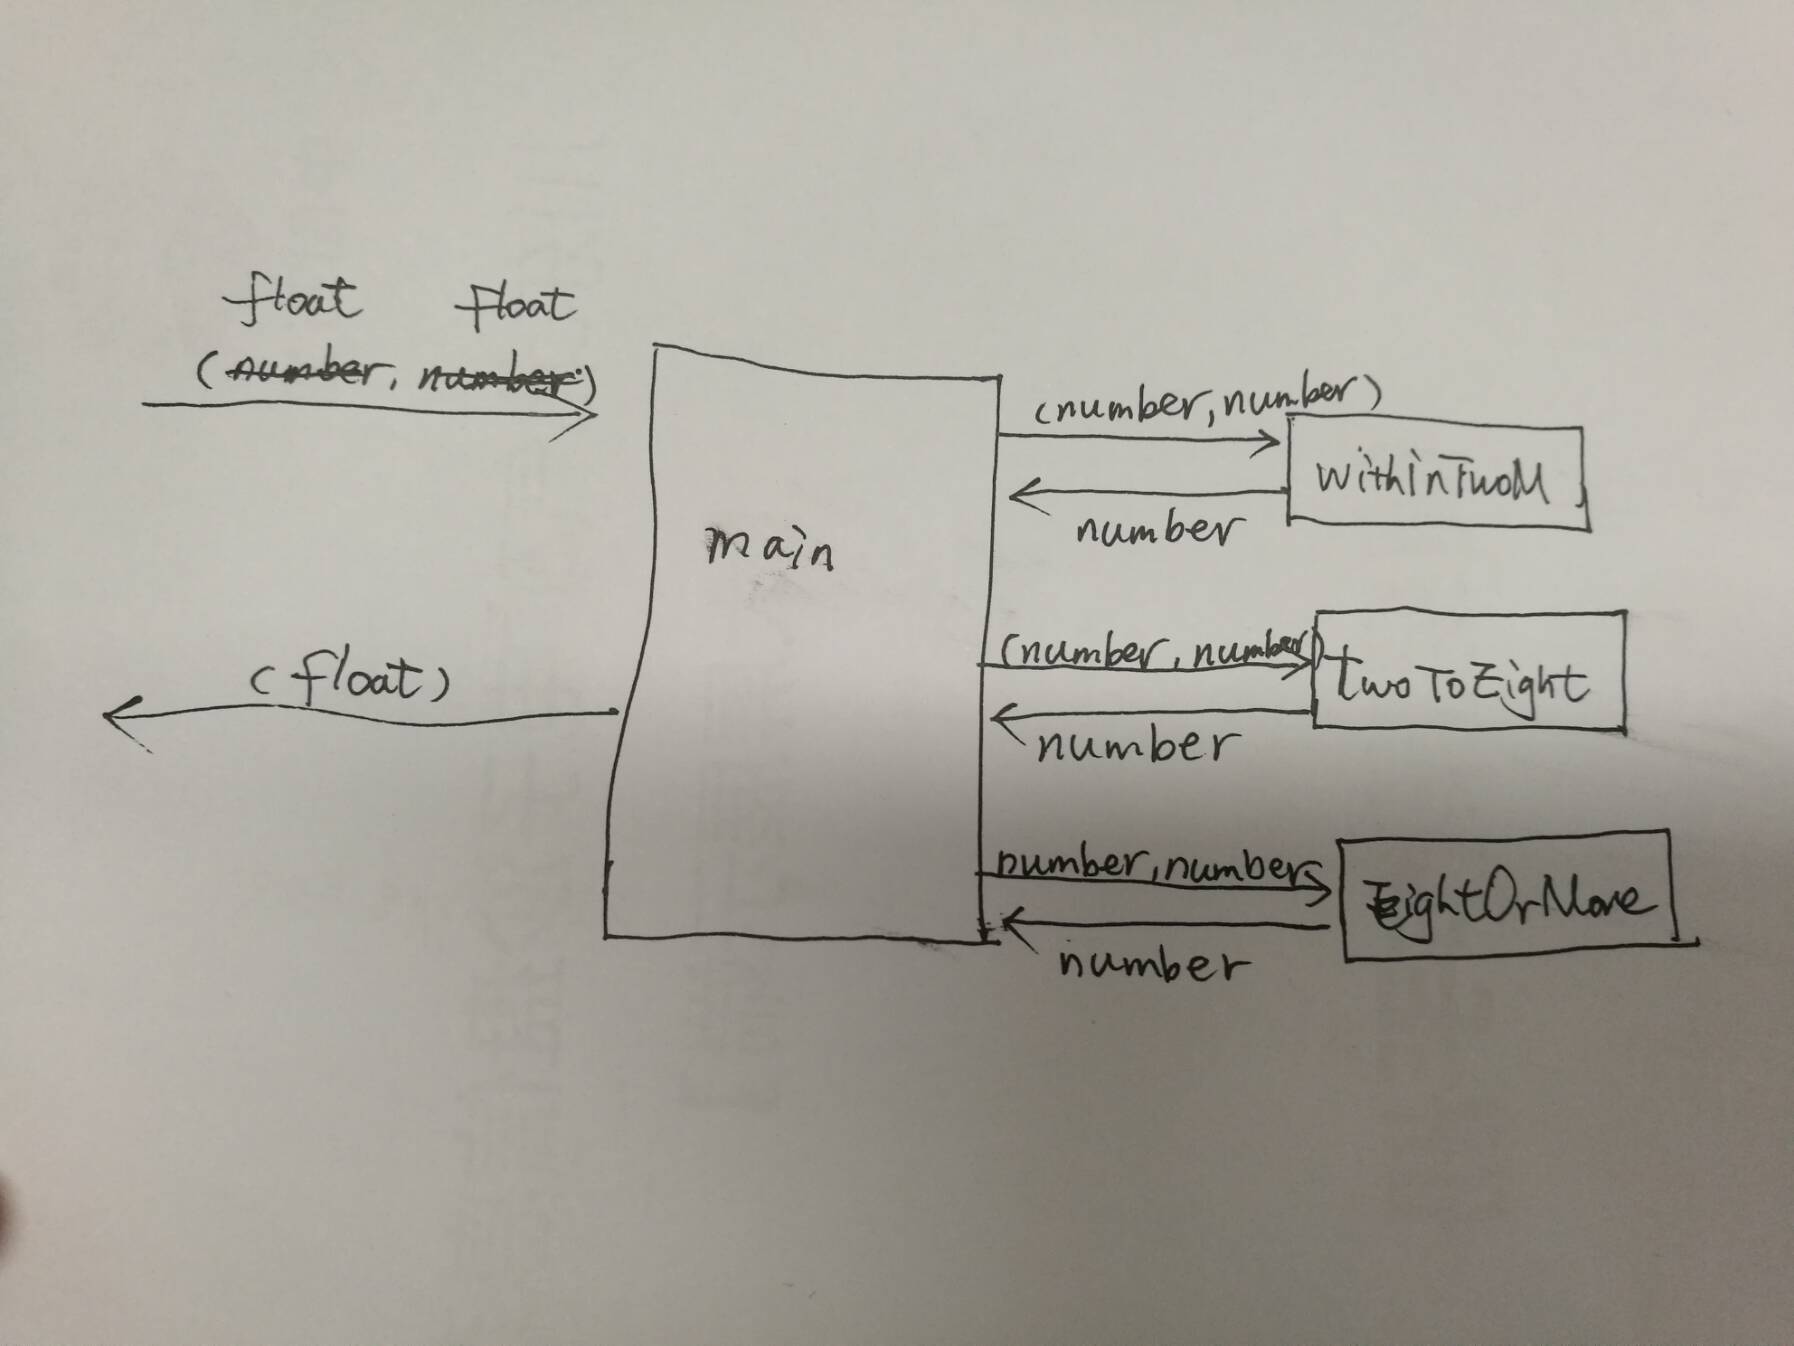 float float
(number, number)
main
(float)
(number, number)
withinTwoM
number
(number, number)
twoToEight
number
number, number
EightOrMore
number